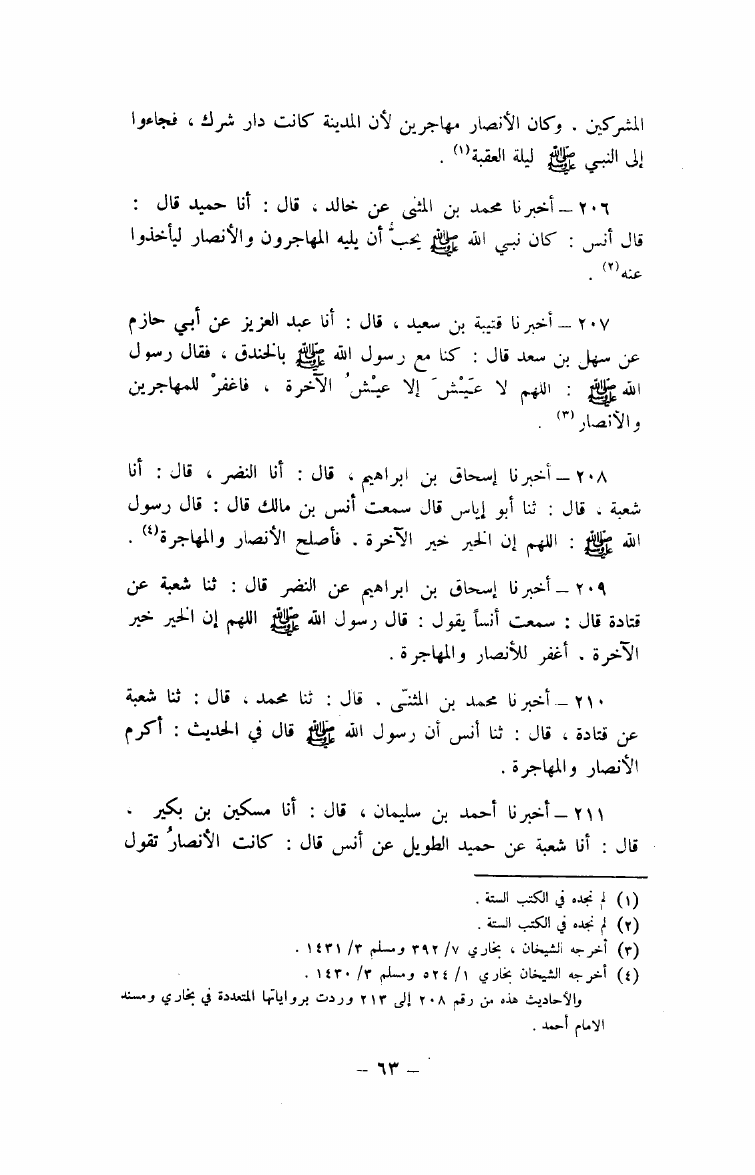 المشركين . وكان الأنصار مهاجرين لأن المدينة كانت دار شرك ، فجاءوا
إلى النبي ﷺ ليلة العقبة(١) .
٢٠٦ – أخبرنا محمد بن المثنى عن خالد ، قال : أنا حميد قال :
قال أنس : كان نبي الله ﷺ يحبُّ أن يليه المهاجرون والأنصار ليأخذوا
عنه(٢) .
٢٠٧ – أخبرنا قتيبة بن سعيد ، قال : أنا عبد العزيز عن أبي حازم
عن سهل بن سعد قال : كنا مع رسول الله ﷺ بالخندق ، فقال رسول
الله ﷺ : اللهم لا عَيْشَ إلا عيْشُ الآخرة ، فاغفرْ للمهاجرين
والأنصار(٣) .
٢٠٨ – أخبرنا إسحاق بن ابراهيم ، قال : أنا النضر ، قال : أنا
شعبة ، قال : ثنا أبو إياس قال سمعت أنس بن مالك قال : قال رسول
الله ﷺ : اللهم إن الخير خير الآخرة . فأصلح الأنصار والمهاجرة(٤) .
٢٠٩ – أخبرنا إسحاق بن ابراهيم عن النضر قال : ثنا شعبة عن
قتادة قال : سمعت أنساً يقول : قال رسول الله ﷺ اللهم إن الخير خير
الآخرة . أغفر للأنصار والمهاجرة .
٢١٠ – أخبرنا محمد بن المثنّى . قال : ثنا محمد ، قال : ثنا شعبة
عن قتادة ، قال : ثنا أنس أن رسول الله ﷺ قال في الحديث : أكرم
الأنصار والمهاجرة .
٢١١ – أخبرنا أحمد بن سليمان ، قال : أنا مسكين بن بكير ،
قال : أنا شعبة عن حميد الطويل عن أنس قال : كانت الأنصارُ تقول
(١) لم نجده في الكتب الستة .
(٢) لم نجده في الكتب الستة .
(٣) أخرجه الشيخان ، بخاري ٧/ ٣٩٢ ومسلم ٣/ ١٤٣١ .
(٤) أخرجه الشيخان بخاري ١/ ٥٢٤ ومسلم ٣/ ١٤٣٠ .
والأحاديث هذه من رقم ٢٠٨ إلى ٢١٣ وردت برواياتها المتعددة في بخاري ومسند
الامام أحمد .
– ٦٣ –